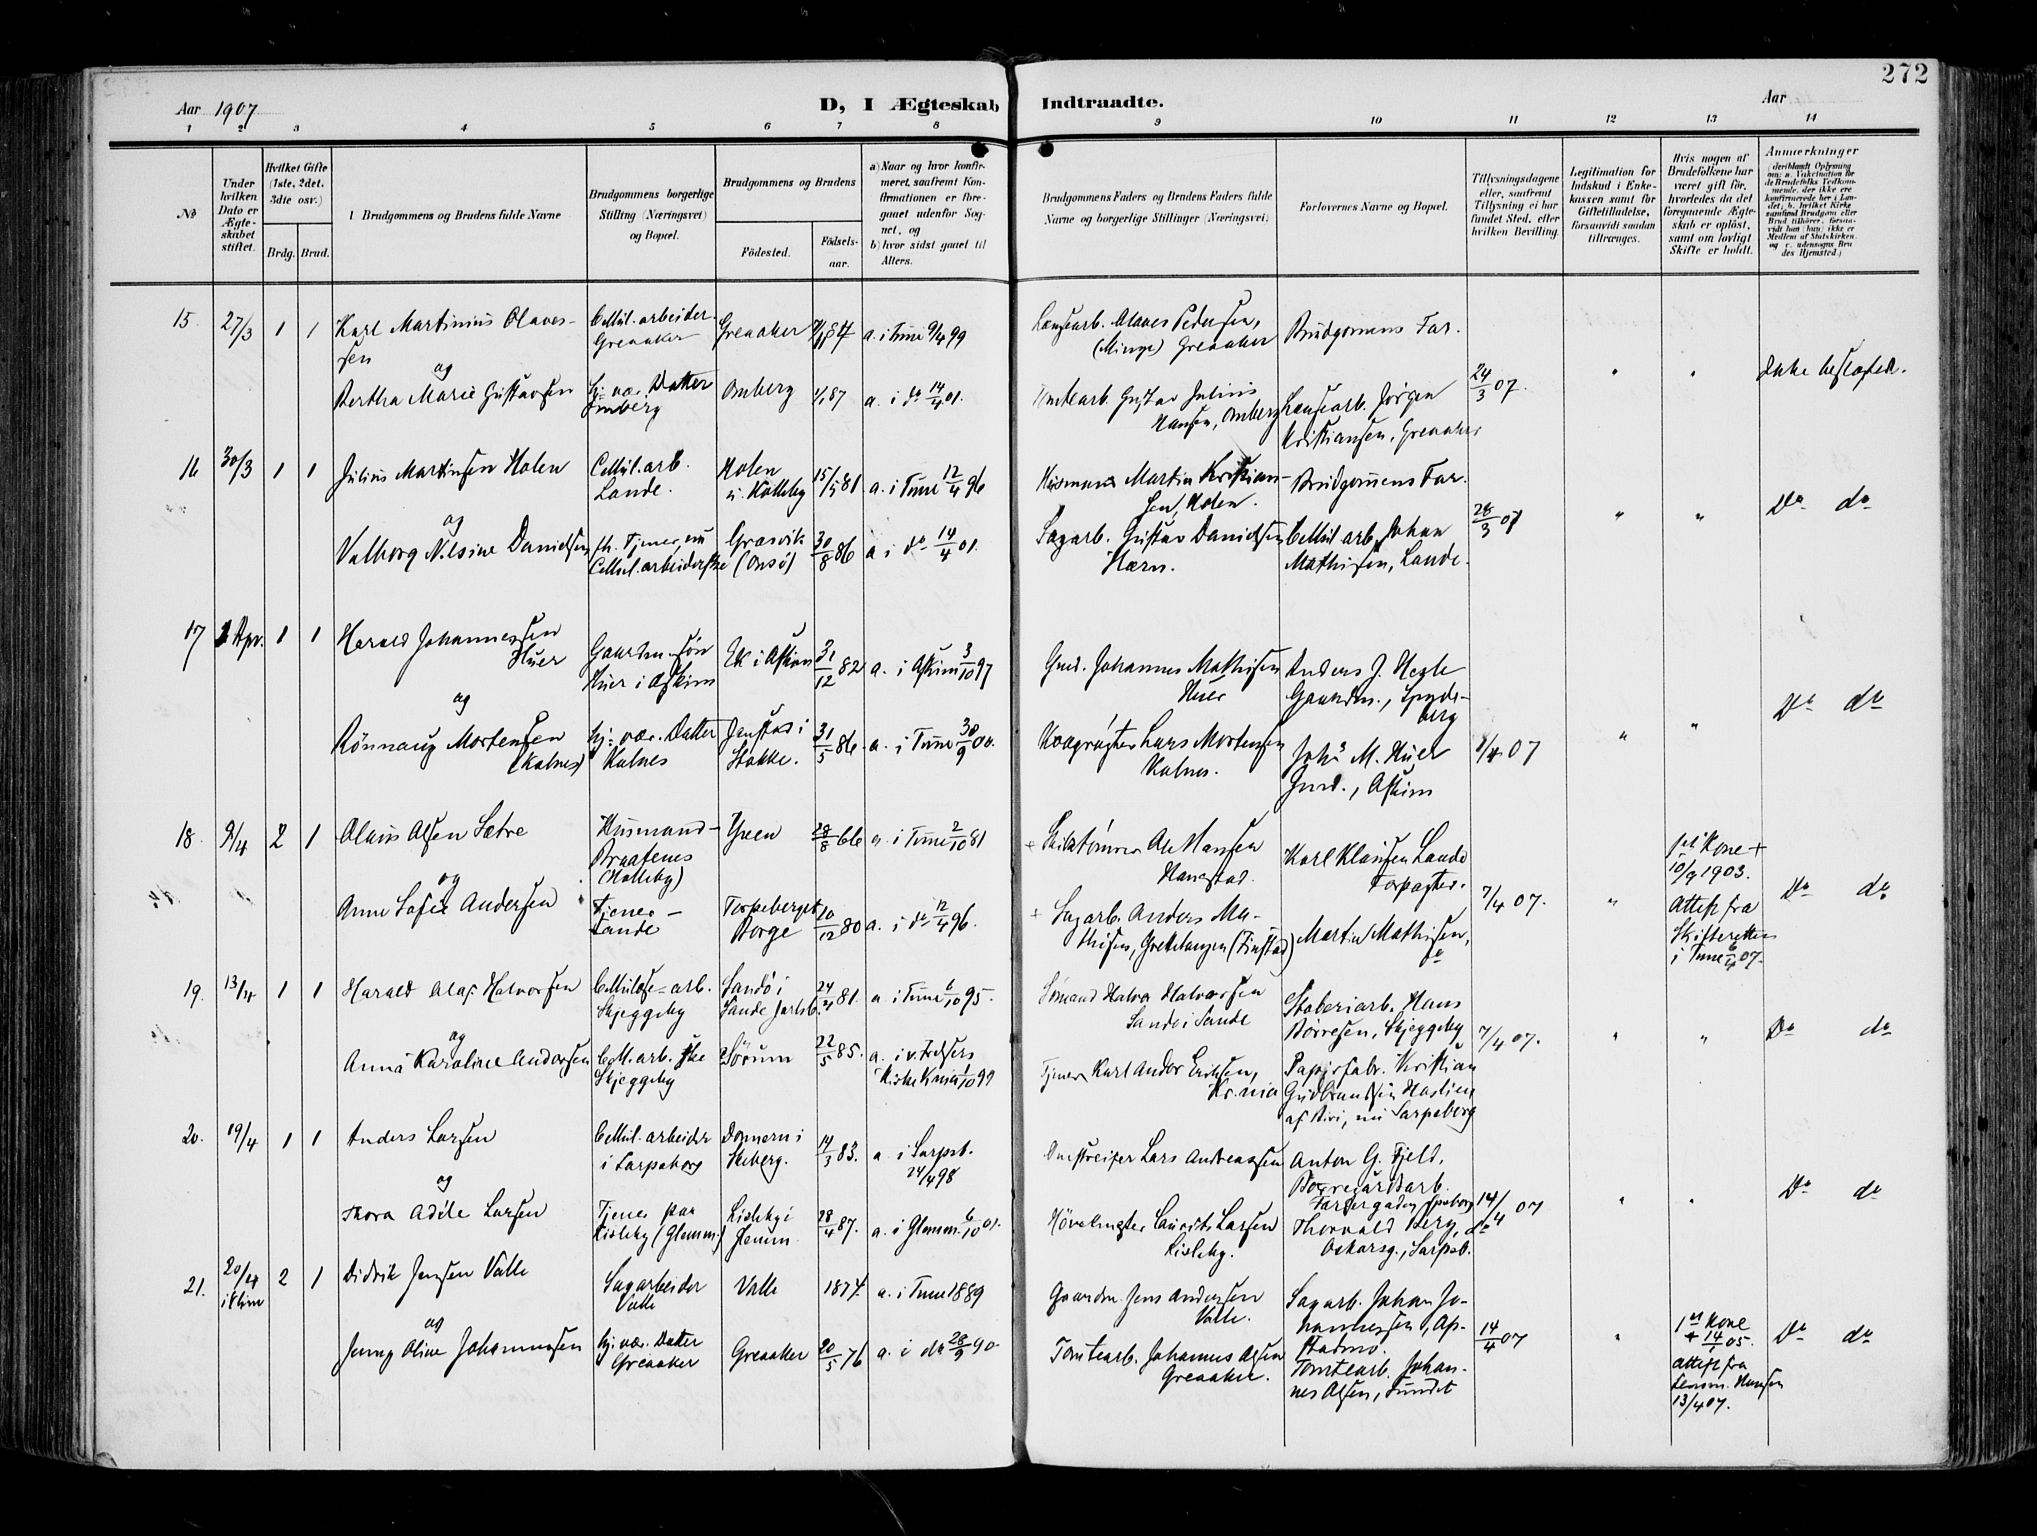 272
Aar 1907
D, I Ægteskab Indtraadte.
Aar
1 2 3 4 5 6 7 8 9 10 11 12 13 14
No
Under hvilken Dato er Ægteskabet stiftet.
Hvilket Gifte (1ste, 2det, 3die osv.)
Brdg. Brud.
1 Brudgommens og Brudens fulde Navne
Brudgommens borgerlige Stilling (Næringsvei) og Bopæl.
Brudgommens og Brudens
Födested.
Födselsaar.
a) Naar og hvor konfirmeret, saafremt Konfirmationen er foregaaet udenfor Sognet, og
b) hvor sidst gaaet til Alters.
Brudgommens Faders og Brudens Faders fulde Navne og borgerlige Stillinger (Næringsvei)
Forlovernes Navne og Bopæl.
Tillysningsdagene eller, saafremt Tillysning ei har fundet Sted, efter hvilken Bevilling.
Legitimation for Indskud i Enkekassen samt for Giftetilladelse, forsaavidt saadan tiltrænges.
Hvis nogen af Brudefolkene har været gift før, hvorledes da det foregaaende Ægteskab er oplöst, samt om lovligt Skifte er holdt.
Anmerkninger
15. 27/3 1 1 Karl Martinius Olavessen
Cellul. arbeider Greaaker
Greaaker
a. i Tune 9/4 99
Olaves Pedersen, (Minge) Greaaker
Brudgomens Far.
og
Bertha Marie Gustavsen
hj. vær. Datter Omberg
Omberg
87
a. i do 14/4 01.
Tomtearb. Gustav Julius Hansen, Omberg
Lænsearb. Jørgen Kristiansen, Greaaker
24/3 07.
Ikke beslægted.
16 30/3 1 1 Julius Martinsen Holen
Cellul. arb. Lande.
Holen u. Kalleby
15/5 81
a. i Tune 12/4 96
Husmand Martin Kristiansen, Holen.
Brudgomens Far.
og
Valborg Nilsine Danielsen
fh. Tjener, nu Cellul. arbeiderske
Græsvik (Onsö)
30/8 86
a i do 14/4 01.
Sagarb. Gustav Danielsen Hærn.
Cellul arb. Johan Mathisen, Lande.
28/3 07
Do do
17 Apr. 1 1 Harald Johannessen Huer
Gaardm. søn Huer i Askim
Ek i Askim
31/12 82
a. i Askim 3/10 97
Grd. Johannes Mathisen Huer
Anders J. Hegle Gaardm., Spydeberg
og
Rönnaug Mortensen (Kalnes)
hj. vær. Datter Kalnes
Jenstad i Stokke.
31/5 86.
a. i Tune 30/9 00.
Lars Mortensen Kalnes.
Johs M. Huer Grd., Askim
1/4 07
Do do
18. 9/4 2 1 Olaus Olsen Sætre
Husmand- Braatenes (Kalleby)
Yven
28/8 66
a. i Tune 2/10 81
+ Ole Hansen Hanestad.
Karl Klausen Lande Forpagter.
1ste Kone + 10/9 1903. Attest fra Skifteretten i Tune 6/4 07.
og
Anne Sofie Andersen
Tjener - Lande
Torpeberget Borge
10/12 80
a. i do 12/4 96.
+ Sagarb. Anders Mathisen, Grethelangen (Tinstad)
Martin Mathisen, do
7/4 07.
Do do
19. 13/4 1 1 Harald Olaf Halvorsen
Cellulose-arb. Skjeggeby
Sandö i Sande Jarlsb.
24/4 81.
a. i Tune 6/10 95.
Sømand Halvor Halvorsen Sandö i Sande
Støberiarb. Hans Børresen, Skjeggeby
7/4 07.
og
Anna Karoline Andersen
Cell. arb. ske Skjeggeby
Sørum
22/5 85.
a. i v. Frelsers Kirke Kr.nia 1/10 99
Tjener Karl Andor Eriksen, Kr.nia
Papirfabr. Kristian Gudbrandsen Haslien, af Biri, nu Sarpsborg
Do do
20. 19/4 1 1 Anders Larsen
Cellul. arbeider i Sarpsborg
Donnern i Skeberg.
14/3 83.
a. i Sarpsb. 24/4 98
Lars Andreassen
Anton G. Fjeld, Borregaardsarb. Sarpsborg
og
Thora Adéle Larsen
Tjener paa Kisleby (Glemm.)
Lisleby i Glemm.
28/4 87.
a. i Glemm. 6/10 01.
Høvelmester Laurits Larsen Lisleby.
Thorvald Berg, Oskarsg., Sarpsb.
14/4 07
Do do
21. 20/4 i Tune 2 1 Didrik Jensen Valle
Sagarbeider Valle
Valle
1874.
a. i Tune 1889
Gaardm. Jens Andersen Valle.
Sagarb. Johan Johannessen, Opstadmo.
og
Jenny Oline Johannessen
hj. vær. Datter Greaaker
Greaaker
20/5 76
a. i do 28/9 90.
Tomtearb. Johannes Olsen Greaaker.
Tomtearb. Johannes Olsen, Sundet
14/4 07
1st Kone + 14/1 05. Attest fra Lensm. Hansen 13/4 07.
Do do